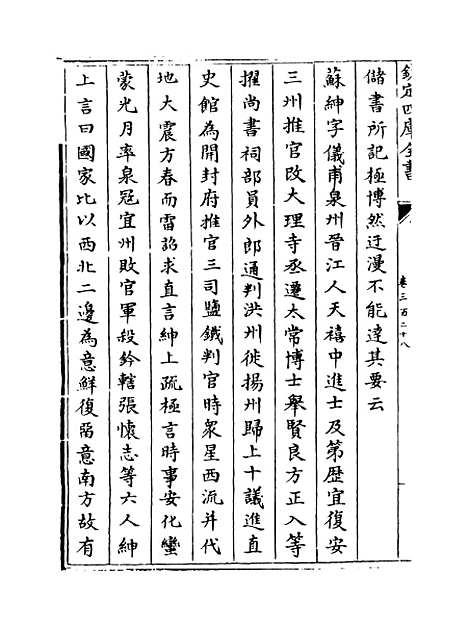 欽定四庫全書
卷三百二十八
儲書所記極博然迂漫不能達其要云
蘇紳字儀甫泉州晉江人天禧中進士及第歷宜復安
三州推官改大理寺丞遷太常博士舉賢良方正入等
擢尚書祠部員外郎通判洪州徙揚州歸上十議進直
史館為開封府推官三司鹽鐵判官時衆星西流并代
地大震方春而雷詔求直言紳上疏極言時事安化蠻
蒙光月率衆寇宜州敗官軍殺鈐轄張懷志等六人紳
上言曰國家比以西北二邊為意鮮復留意南方故有